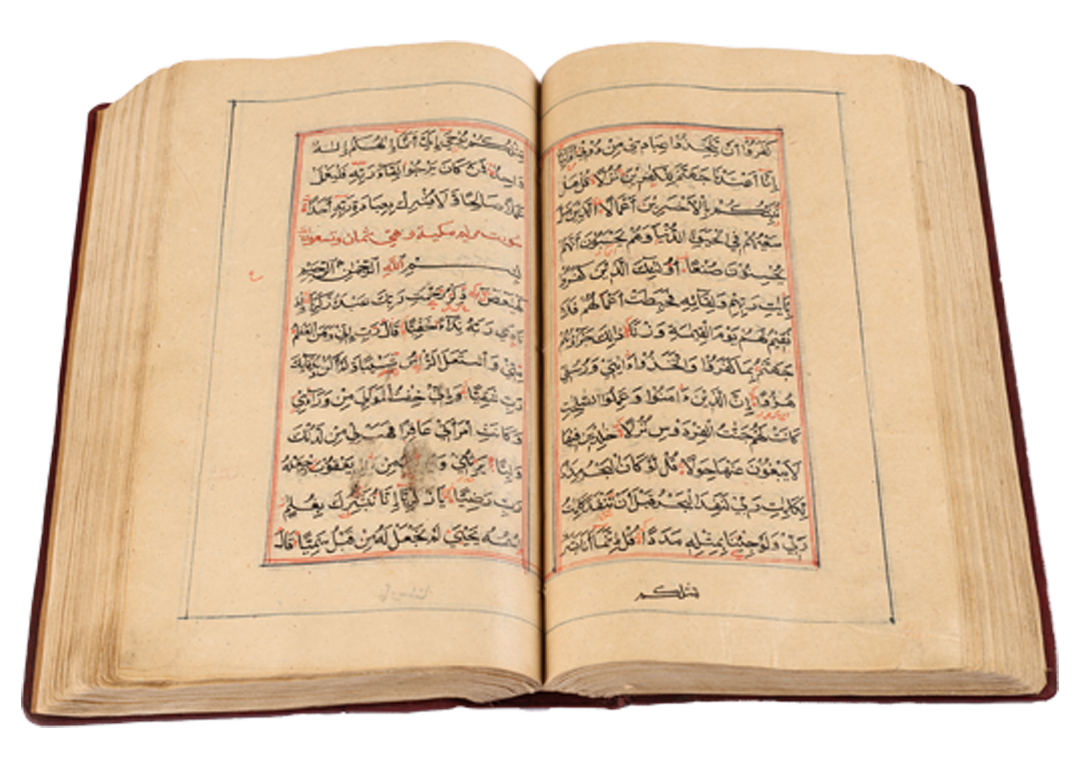 كَفَرُوا أَنْ يَتَّخِذُوا عِبَادِي مِنْ دُونِي أَوْلِيَاءَ
إِنَّا أَعْتَدْنَا جَهَنَّمَ لِلْكٰفِرِينَ نُزُلًا قُلْ هَلْ
نُنَبِّئُكُمْ بِالْأَخْسَرِينَ أَعْمَالًا الَّذِينَ ضَلَّ
سَعْيُهُمْ فِي الْحَيٰوةِ الدُّنْيَا وَهُمْ يَحْسَبُونَ أَنَّهُمْ
يُحْسِنُونَ صُنْعًا أُولٰئِكَ الَّذِينَ كَفَرُوا
بِاٰيٰتِ رَبِّهِمْ وَلِقَائِهِ فَحَبِطَتْ أَعْمَالُهُمْ فَلَا
نُقِيمُ لَهُمْ يَوْمَ الْقِيٰمَةِ وَزْنًا ذٰلِكَ جَزَاؤُهُمْ
جَهَنَّمُ بِمَا كَفَرُوا وَاتَّخَذُوا ءَايٰتِي وَرُسُلِي
هُزُوًا إِنَّ الَّذِينَ ءَامَنُوا وَعَمِلُوا الصّٰلِحٰتِ
كَانَتْ لَهُمْ جَنّٰتُ الْفِرْدَوْسِ نُزُلًا خٰلِدِينَ فِيهَا
لَا يَبْغُونَ عَنْهَا حِوَلًا قُلْ لَوْ كَانَ الْبَحْرُ مِدَادًا
لِكَلِمٰتِ رَبِّي لَنَفِدَ الْبَحْرُ قَبْلَ أَنْ تَنْفَدَ كَلِمٰتُ
رَبِّي وَلَوْ جِئْنَا بِمِثْلِهِ مَدَدًا قُلْ إِنَّمَا أَنَا بَشَرٌ
مثلكم
مِثْلُكُمْ يُوحَى إِلَيَّ أَنَّمَا إِلٰهُكُمْ إِلٰهٌ
وَاحِدٌ فَمَنْ كَانَ يَرْجُوا لِقَاءَ رَبِّهِ فَلْيَعْمَلْ
عَمَلًا صَالِحًا وَلَا يُشْرِكْ بِعِبَادَةِ رَبِّهِ أَحَدًا
سورت مريم مكية وهي ثمان وتسعون
بِسْمِ اللَّهِ الرَّحْمٰنِ الرَّحِيمِ
كهيعص ذِكْرُ رَحْمَتِ رَبِّكَ عَبْدَهُ زَكَرِيَّا إِذْ
نَادَى رَبَّهُ نِدَاءً خَفِيًّا قَالَ رَبِّ إِنِّي وَهَنَ الْعَظْمُ
مِنِّي وَاشْتَعَلَ الرَّأْسُ شَيْبًا وَلَمْ أَكُنْ بِدُعَائِكَ
رَبِّ شَقِيًّا وَإِنِّي خِفْتُ الْمَوَالِيَ مِنْ وَرَاءِي
وَكَانَتِ امْرَأَتِي عَاقِرًا فَهَبْ لِي مِنْ لَدُنْكَ
وَلِيًّا يَرِثُنِي وَيَرِثُ مِنْ ءَالِ يَعْقُوبَ وَاجْعَلْهُ
رَبِّ رَضِيًّا يَا زَكَرِيَّا إِنَّا نُبَشِّرُكَ بِغُلٰمٍ
اسْمُهُ يَحْيَى لَمْ نَجْعَلْ لَهُ مِنْ قَبْلُ سَمِيًّا قَالَ